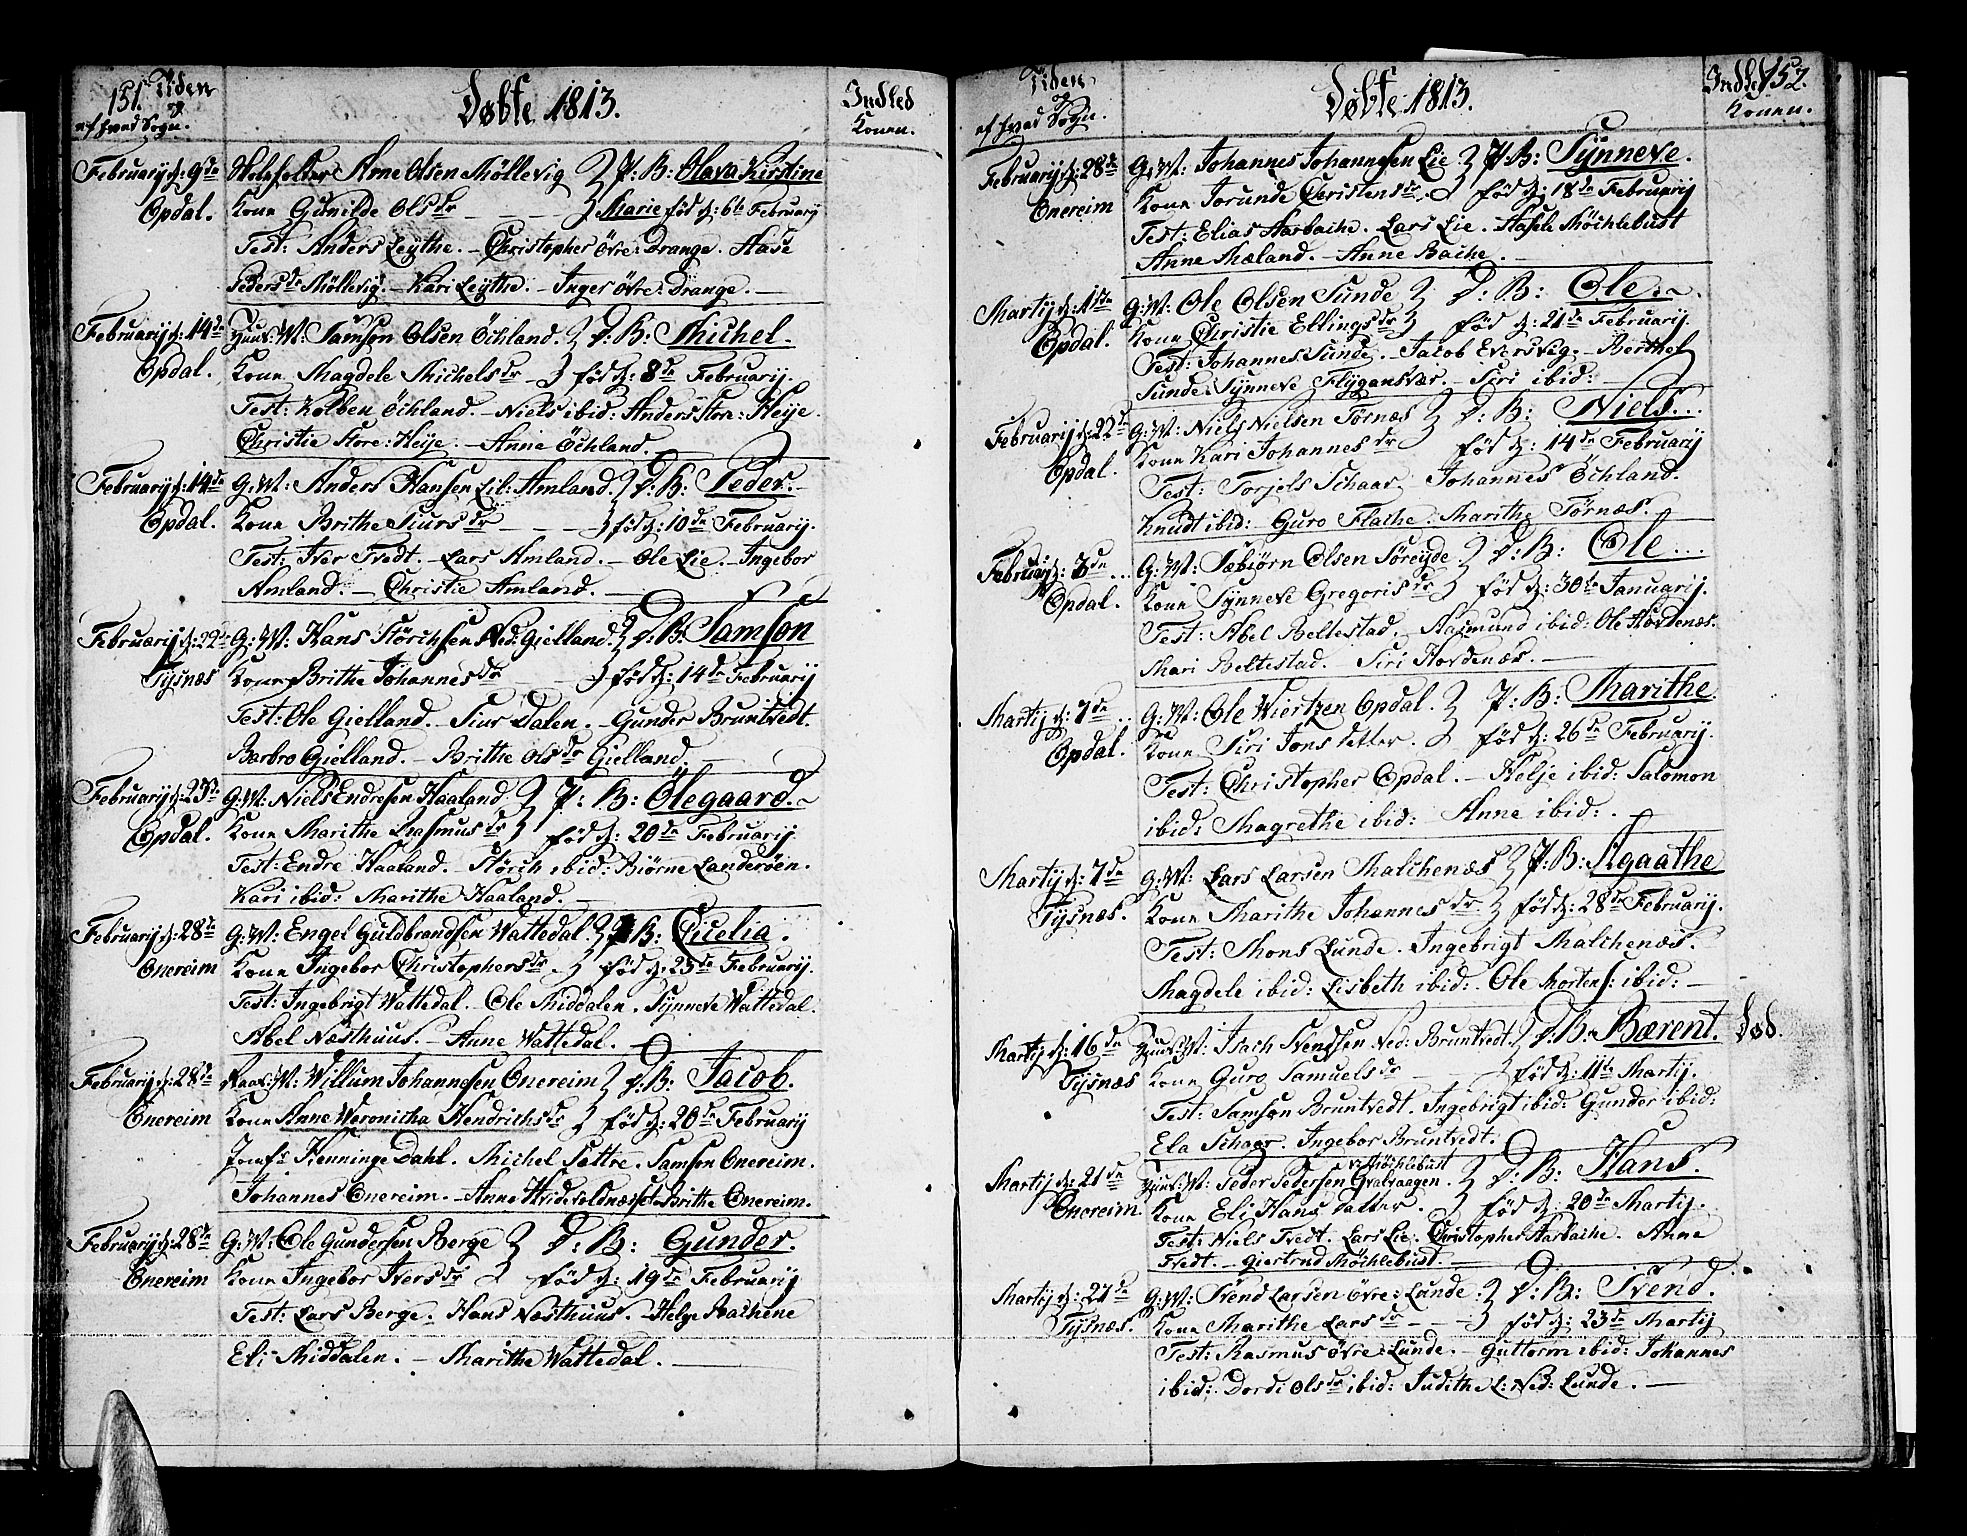 151. Tiden
og
af hvad Sogn.
Døbte 1813.
Indled
Konen.
Februarij d: 9de
Opdal.
Arne Olsen Möllevig P: B: Olava Kirstine
Kone Gunilde Olsdr Marie föd d: 6te Februarij
Test: Anders Leythe. - Christopher övre: Drange. Aase
Pedersdr Möllevig. - Kari Leythe. - Inger övre: Drange. -
Februarij d: 14de
Opdal.
Huus: M: Samson Olsen Öchland. D: B: Michel.
Kone Magdele Michelsdr föd d: 8de Februarij.
Test: Kolben Öchland. - Niels ibid: Anders Store: Heije.
Christie Store: Heije. - Anne Öchland.
Februarij d: 14de
Opdal.
G: M: Anders Hansen Lil: Amland. D: B: Peder.
Kone Brithe Siursdr föd d: 10de Februarij.
Test: Iver Tvedt. - Lars Amland. - Ole Lie. - Ingebor
Amland. - Christie Amland. -
Februarij d: 22de
Tysnæs
G: M: Hans Störchsen Ned: Gielland. D: B: Samson
Kone Brithe Johannesdr föd d: 14de Februarij
Test: Ole Gielland. - Siur Dalen. - Gunder Bruntvedt.
Barbro Gielland. - Brithe Olsdr Gielland. -
Februarij d: 23de
Opdal.
G: M: Niels Endresen Haaland. P: B: Ölegaard.
Kone Marithe Rasmusdr föd d: 20de Februarij.
Test: Endre Haaland. - Störch ibid: Biörne Landeröen.
Kari ibid: Marithe Haaland. -
Februarij d: 28de
Onereim
G: M: Engel Guldbrandsen Wattedal. P: B: Cicelia.
Kone Ingebor Christophersdr föd d: 23de Februarij.
Test: Ingebrigt Wattedal. Ole Middalen. Synneve Wattedal.
Abel Næsthuus. - Anne Wattedal. -
Februarij d: 28de
Onereim
M: Willum Johannesen Onereim D: B: Jacob.
Kone Anne Weronicha Hendrichsdr föd d: 20de Februarij
Henninge Dahl. Michel Sættre. Samson Onereim.
Johannes Onereim. - Anne Brithe Onereim.
Februarij d: 28de
Onereim
G: M: Ole Gundersen Berge D: B: Gunder.
Kone Ingebor Iversdr föd d: 19de Februarij
Test: Lars Berge. Hans Næsthuus. - Helge Bachene
Eli Middalen. - Marithe Wattedal. -
Tiden
og
af hvad Sogn.
Døbte 1813.
Indled 152.
Konen.
Februarij d: 28de
Onereim
G: M: Johannes Johannesen Lie P: B: Synneve.
Kone Jorunde Christensdr. föd d: 18de Februarij
Test: Elias Aarbache. Lars Lie. Möchlebust
Anne Mæland. - Anne Bache. -
Martij d: 1ste
Opdal.
G: M: Ole Olsen Sunde D: B: Ole.
Kone Christie Ellingsdr föd d: 21de Februarij.
Test: Johannes Sunde. - Jacob Eversvig. - Berthel
Sunde. Synneve Flygansvær. - Siri ibid: -
Februarij d: 22de
Opdal.
G: M: Niels Nielsen Tørnæs D: B: Niels.
Kone Kari Johannesdr föd d: 14de Februarij
Test: Torjels Schaar Johannes Öchland.
Knudt ibid: Guro Flathe. Marithe Törnæs. -
Februarij d: 3de
Opdal.
G: M: Sæbiörn Olsen Söreyde. D: B: Ole
Kone Synneve Gregorisdr föd d: 30te Januarij.
Test: Abel Beltestad. - Aasmund ibid: Ole Hovdenæs.
Mari Beltestad. - Siri Hovdenæs. -
Martij d: 7de
Opdal.
G: M: Ole Wiertzen Opdal. P: B: Marithe.
Kone Siri Jonsdatter. föd d: 26de Februarij.
Test: Christopher Opdal. - Helje ibid: Salomon
ibid: Magrethe ibid: Anne ibid: -
Martij d: 7de
Tysnæs.
G: M: Lars Larsen Malchenæs P: B: Agaathe
Kone Marithe Johannesdr. föd d: 28de Februarij.
Test: Mons Lunde. Ingebrigt Malchenæs.
Magdele ibid: Lisbeth ibid: Ole Mortens: ibid: -
Martij d: 16de
Tysnæs
Huus: M: Isach Svendsen Ned: Bruntvedt D: B: Bærent. Död.
Kone Guro Samuelsdr föd d: 11te Martij.
Test: Samson Bruntvedt. Ingebrigt ibid: Gunder ibid:
Ela Schaar. Ingebor Bruntvedt.
Martij d: 21de
Onereim.
Möchlebust
Huus: M: Peder Pedersen Gvalvaagen. D: B: Hans.
Kone Eli Hansdatter. föd d: 20de Martij.
Test: Niels Tvedt. Lars Lie. Christopher Aarbache. Anne
Tvedt. - Giertrud Möchlebust. -
Martij d: 27de
Tysnæs.
G: M: Svend Larsen övre: Lunde. D: B: Svend.
Kone Marithe Larsdr föd d: 23de Martij
Test: Rasmus övre: Lunde. - Guttorm ibid: Johannes
ibid: Dordi Olsdr ibid: Judithe L: Ned: Lunde. -